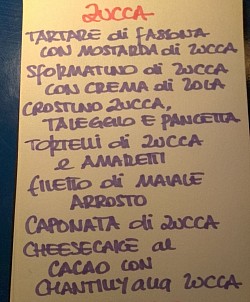 ZUCCA
TARTARE di FASSONA
CON MOSTARDA di ZUCCA
SFORMATINO di ZUCCA
CON CREMA di ZOLA
CROSTINO ZUCCA,
TALEGGIO E PANCETTA
TORTELLI di ZUCCA
e AMARETTI
FILETTO di MAIALE
ARROSTO
CAPONATA di ZUCCA
CHEESECAKE al
CACAO CON
CHANTILLY alla ZUCCA